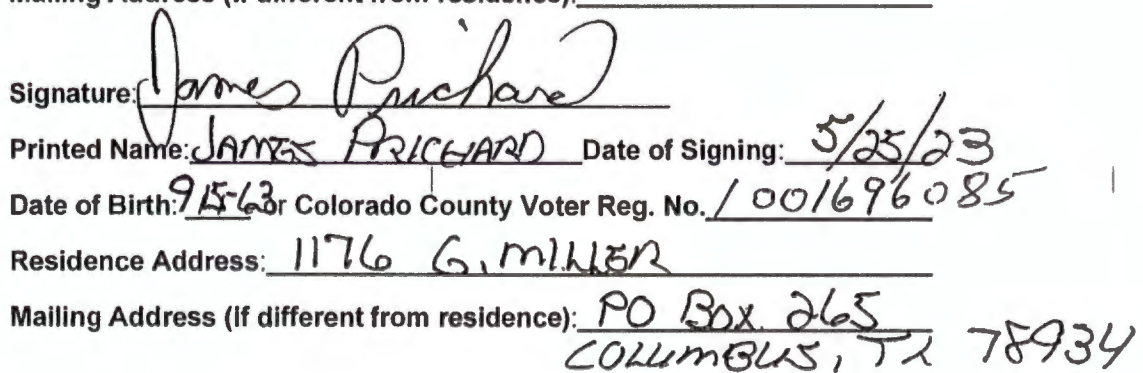 Mailing Address (if different from residence):
Signature: James Prichard
Printed Name: JAMES PRICHARD Date of Signing: 5/25/23
Date of Birth: 9-15-63 or Colorado County Voter Reg. No. 1001696085
Residence Address: 1176 G. MILLER
Mailing Address (if different from residence): PO BOX 265
COLUMBUS, TX 78934